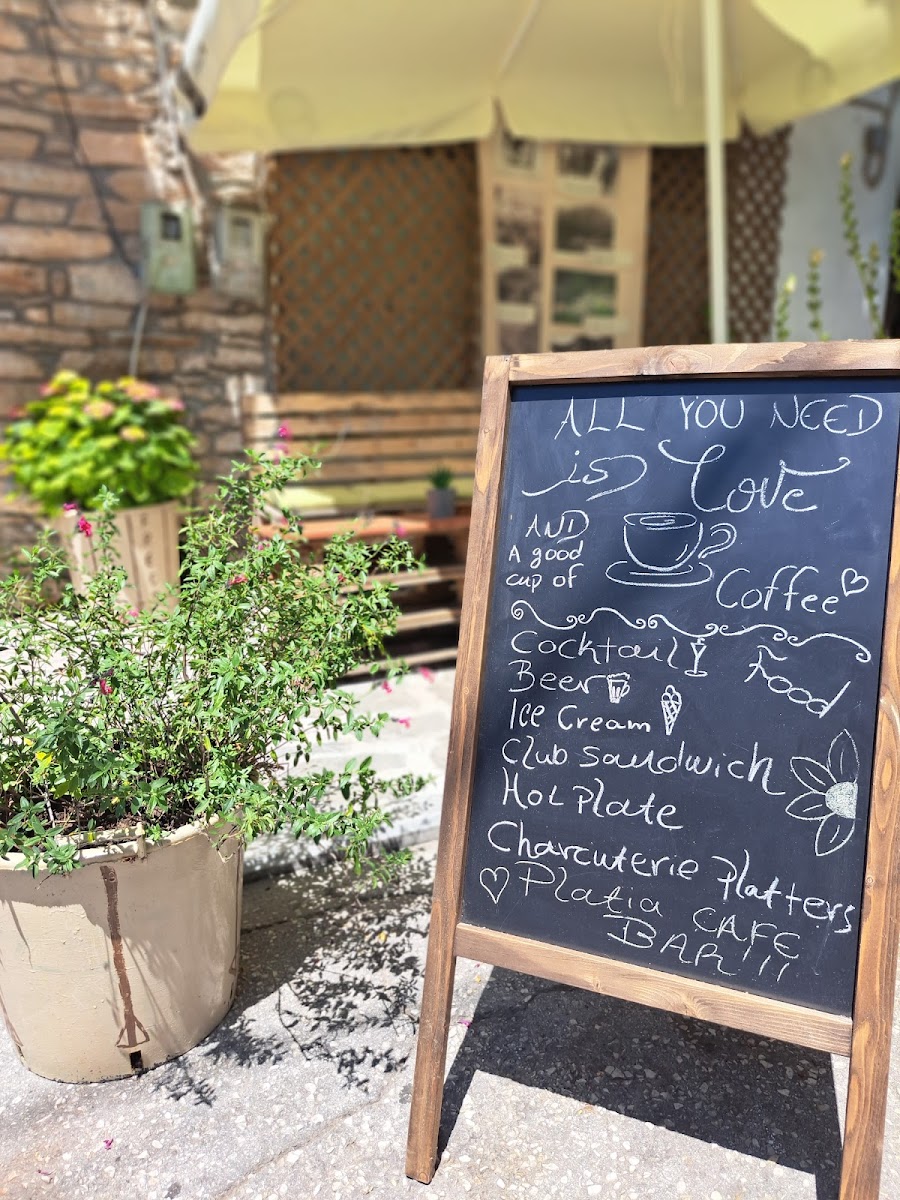 ALL YOU NEED
is Love
AND
A good
cup of
Coffee
Cocktail
Food
Beer
Ice Cream
Club Sandwich
Hot Plate
Charcuterie Platters
Platia CAFE
BAR!!!